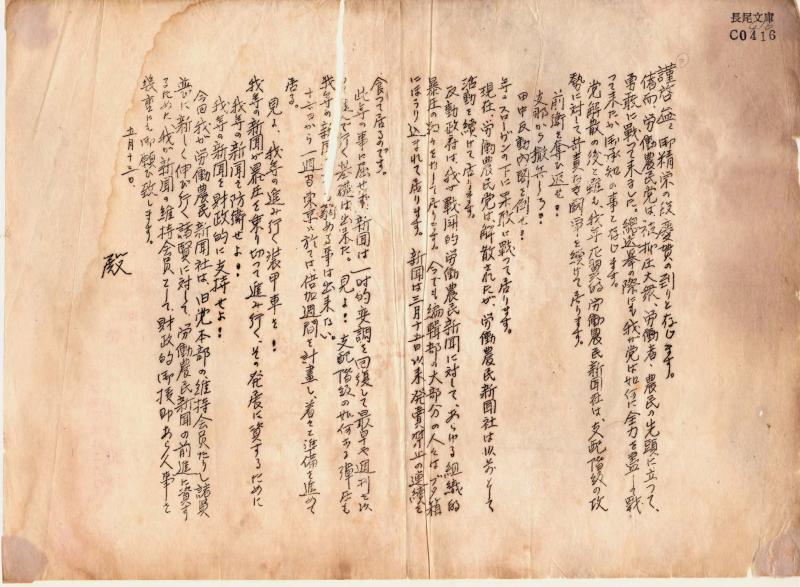 長尾文庫
C0416
謹啓 益々御精栄の段 慶賀の到りと存じます。
偖而、労働農民党は、被抑圧大衆、労働者、農民の先頭に立つて、
勇敢に戦つて来ました。総選挙の際にも我が党は如何に全力を盡して戦
つて来たか御承知の事と存じます。
党解散の後と雖も、我等 労働農民新聞社は、支配階級の攻
勢に対して 闘争を続けて居ります。
前衛を奪ひ返せ！
支那から撤兵しろ！
田中反動内閣を倒せ！
等々スローガンの下に果敢に戦つて居ります。
現在、労働農民党は解散されたが、労働農民新聞社は以前として
活動を続けて居ります。
反動政府は、我が戦闘的労働農民新聞に対して、あらゆる組織的
暴圧の をして居ります。今でも編輯部の大部分の人々はブタ箱
にほうり込まれて居ります。新聞は三月十五日以来発賣禁止の連続を
食つて居るのです。
此等の事に屈せず、新聞は一時的変調を回復して最早や週刊を以
つて 行く基礎は出来た。見よ！支配階級の如何なる弾圧も
我等の新聞 める事は出来ない。
十七日から一週間東京に於ては、倍加週間を計畫し、着々と準備を進めて
居る。
見よ、我等の進み行く装甲車を！
我等の新聞が暴圧を乗り切つて進み行く、その発展に資するために
我等の新聞を防衛せよ！
我等の新聞を財政的に支持せよ！
今回我が労働農民新聞社は、旧党本部の維持会員たりし諸賢
並に新しく伸び行く諸賢に対して、労働農民新聞の前進に資す
るため、我が新聞の維持会員として、財政的御援助あらん事を
幾重にも御願ひ致します。
五月十三日
殿